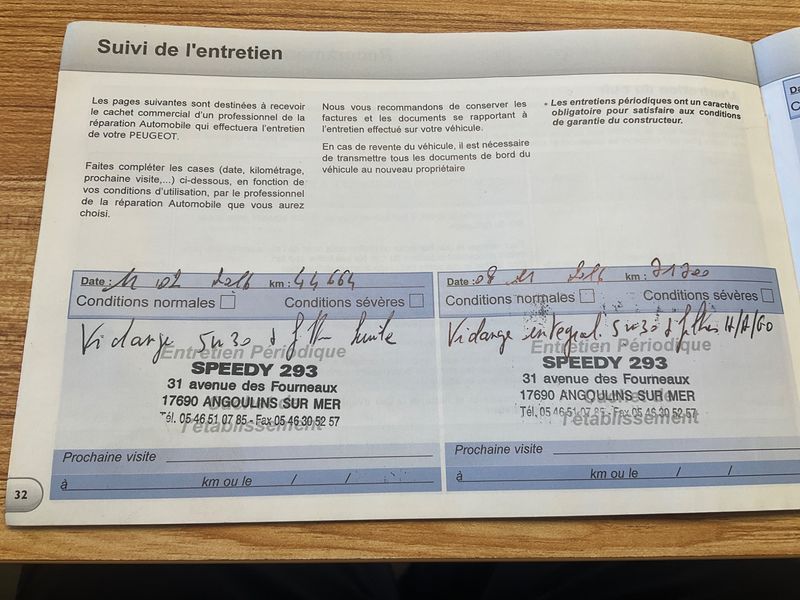 Suivi de l'entretien
Les pages suivantes sont destinées à recevoir
le cachet commercial d'un professionnel de la
réparation Automobile qui effectuera l'entretien
de votre PEUGEOT.
Faites compléter les cases (date, kilométrage,
prochaine visite,...) ci-dessous, en fonction de
vos conditions d'utilisation, par le professionnel
de la réparation Automobile que vous aurez
choisi.
Nous vous recommandons de conserver les
factures et les documents se rapportant à
l'entretien effectué sur votre véhicule.
En cas de revente du véhicule, il est nécessaire
de transmettre tous les documents de bord du
véhicule au nouveau propriétaire
• Les entretiens périodiques ont un caractère
obligatoire pour satisfaire aux conditions
de garantie du constructeur.
Date : 11 02 2016 km : 44664
Conditions normales Conditions sévères
Vidange 5w30 + filtre huile
Entretien Périodique
SPEEDY 293
31 avenue des Fourneaux
17690 ANGOULINS SUR MER
Tél. 05 46 51 07 85 - Fax 05 46 30 52 57
l'établissement
Prochaine visite
à km ou le / /
Date : 08 11 2016 km : 71700
Conditions normales Conditions sévères
Vidange integral 5w30 + filtres H/A/GO
Entretien Périodique
SPEEDY 293
31 avenue des Fourneaux
17690 ANGOULINS SUR MER
Tél. 05 46 51 07 85 - Fax 05 46 30 52 57
l'établissement
Prochaine visite
à km ou le / /
32